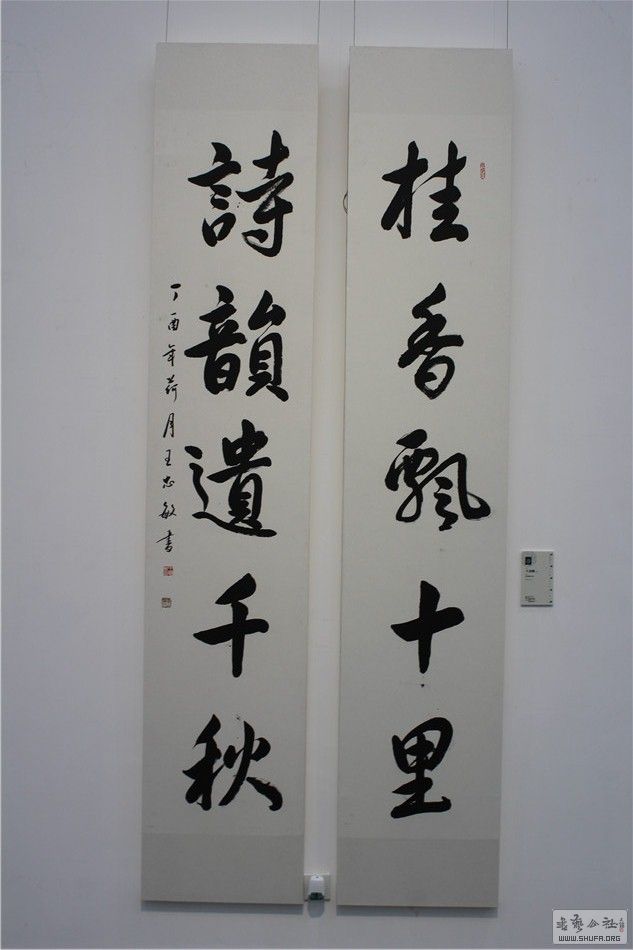 桂香飄十里
詩韻遺千秋
丁酉年荷月王忠敏書
WWW.SHUFA.ORG